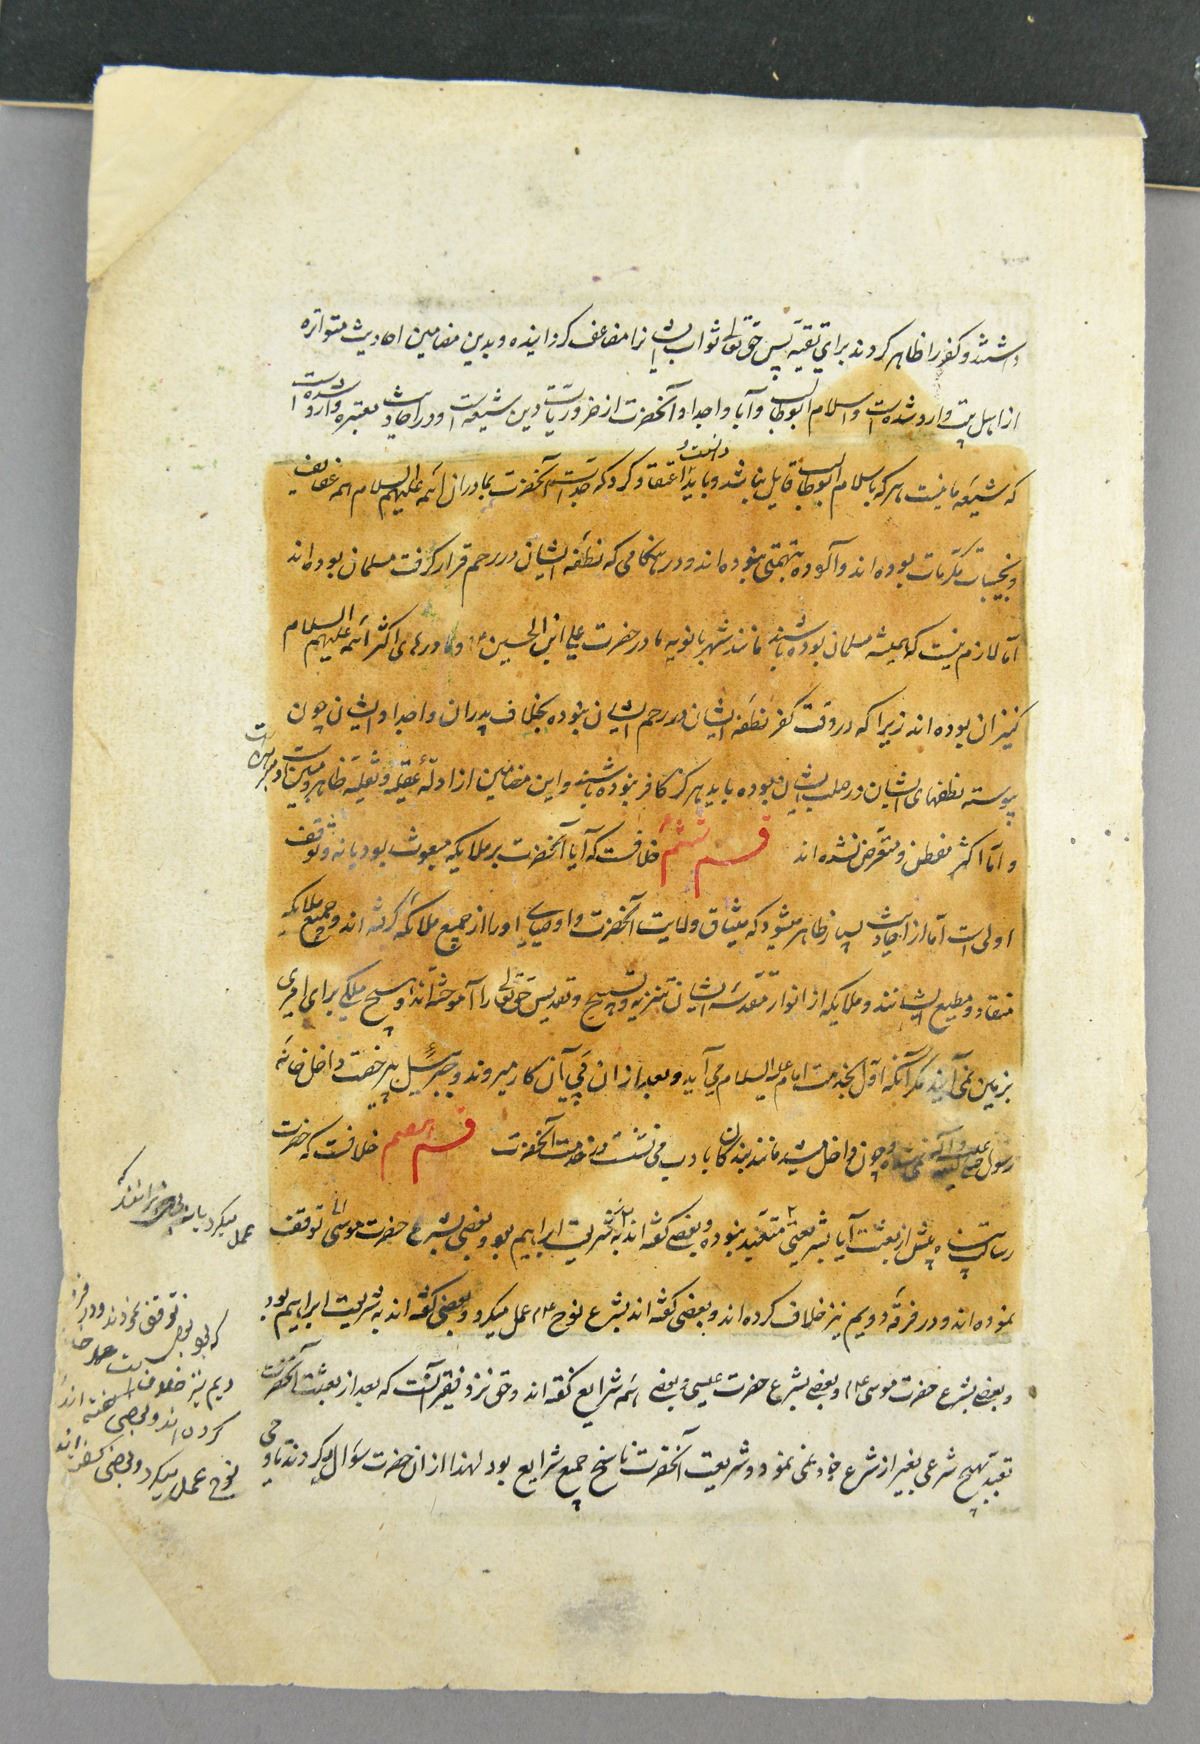 داشتند و کفر را ظاهر کردند برای تقیه پس حق تعالی ثواب ایشان را مضاعف گردانیده و بدین مضامین احادیث متواتره
از اهل بیت وارد شده است و اسلام ابوطالب و آبا و اجداد آنحضرت از ضروریات دین شیعه است و در احادیث معتبره وارد شده است
که شیعه ما نیست هر که باسلام ابوطالب قایل نباشد و باید دانست و اعتقاد کرد که جدات آنحضرت بمادران ائمه علیهم السلام همه عفایف
و نجیبات مکرمات بوده اند و آلوده بتهمتی نبوده اند و در هنگامی که نطفه ایشان در رحم قرار گرفت مسلمان بوده اند
اما لازم نیست که همیشه مسلمان بوده باشند مانند شهربانویه مادر حضرت علی ابن الحسین ع و مادرهای اکثر ائمه علیهم السلام
کنیزان بوده اند زیرا که در وقت کفر نطفه ایشان در رحم ایشان نبوده بخلاف پدران و اجداد ایشان چون
پیوسته نطفهای ایشان در صلب ایشان بوده باید هرگز کافر نبوده باشند و این مضامین از ادله عقلیه و نقلیه ظاهر و مبین است
و اما اکثر مفطن و متعرض نشده اند قسم ششم خلافست که آیا آنحضرت بر ملایکه مبعوث بود یا نه و توقف
اولی است اما از احادیث بسیار ظاهر میشود که میثاق ولایت آنحضرت و اوصیای او را از جمیع ملائکه گرفته اند و جمیع ملایکه
منقاد و مطیع ایشانند و ملایکه از انوار مقدسه ایشان تنزیه و تسبیح و تقدیس حق تعالی را آموخته اند و هیچ ملکی برای امری
بزمین نمی آیند مگر آنکه اول بخدمت امام علیه السلام می آید و بعد از ان پی آن کار میروند و جبرئیل بیرخصت داخل خانه
رسول صلی الله علیه و آله نمیشد و چون داخل میشد مانند بندگان با ادب می نشست در خدمت آنحضرت قسم هفتم خلافست که حضرت
رسالت پناه پیش از بعثت آیا بشریعتی متعبد نبوده و بعضی گفته اند بشریعت ابراهیم بود و بعضی بشرع حضرت موسی توقف
نموده اند و در فرقه دویم نیز خلاف کرده اند و بعضی گفته اند بشرع نوح ع عمل میکرد و بعضی گفته اند بشریعت ابراهیم بود
و بعضی بشرع حضرت موسی ع و بعضی بشرع حضرت عیسی و بعضی همه شرایع گفته اند و حق نزد فقیر آنست که بعد از بعثت آنحضرت
تعبد بهیچ شرعی بغیر از شرع خود نمی نمود و شریعت آنحضرت ناسخ جمیع شرایع بود لهذا از ان حضرت سؤال میکردند تا وحی
عمل میکرد یا نه
که بود بعضی توقف نمودند و در فرقه
دیم نیز خلاف
کرده اند و بعضی گفته اند
نوح عمل میکرد و بعضی گفته اند